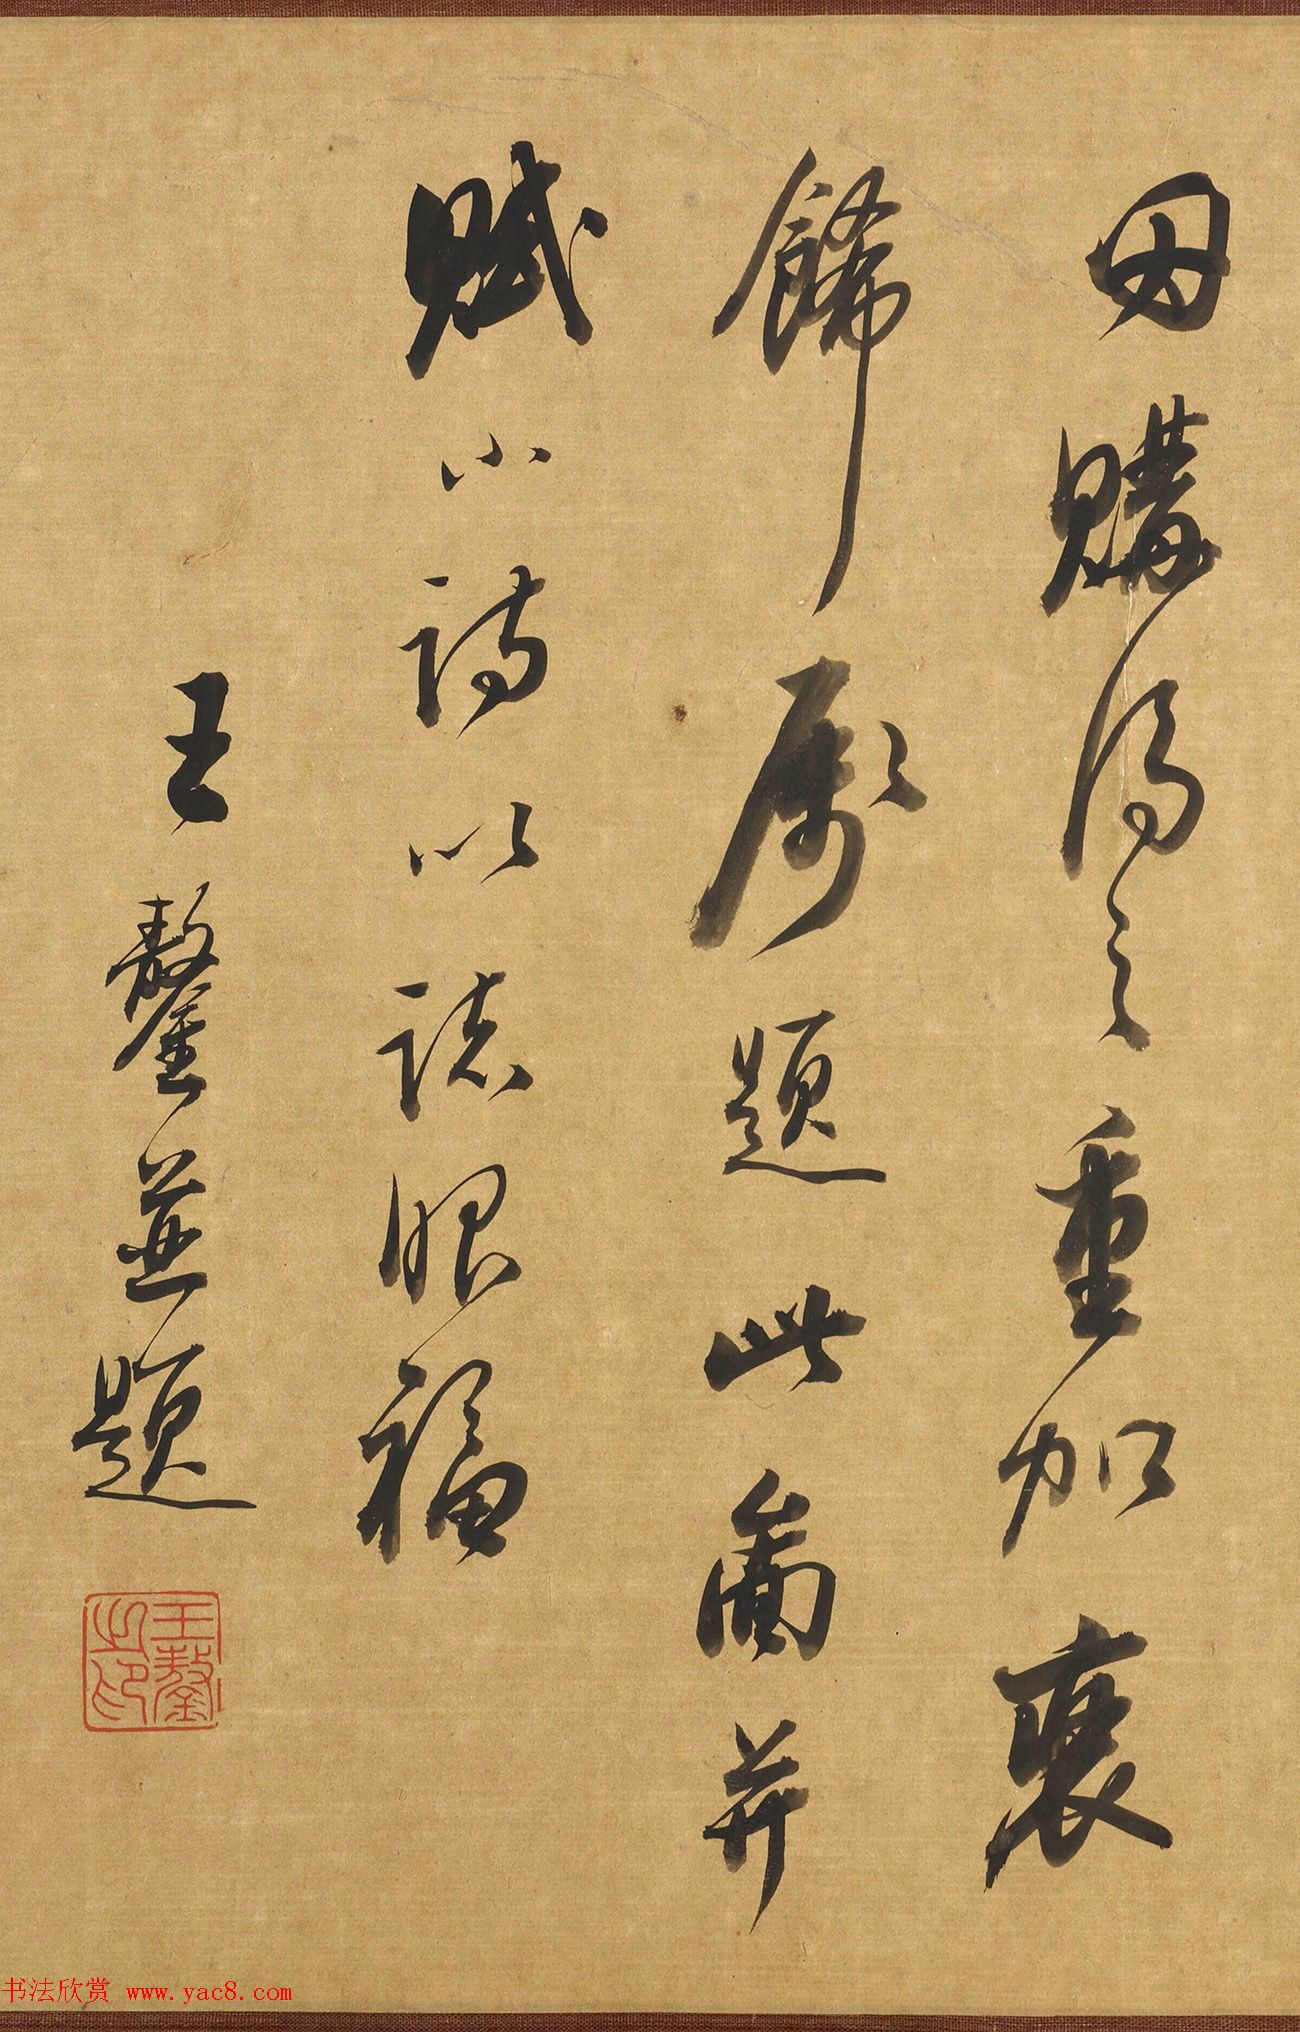 因購得之重加裒
飾屬題此啚并
賦小詩以誌眼福
王鏊並題
王鏊之印
书法欣赏 www.yac8.com